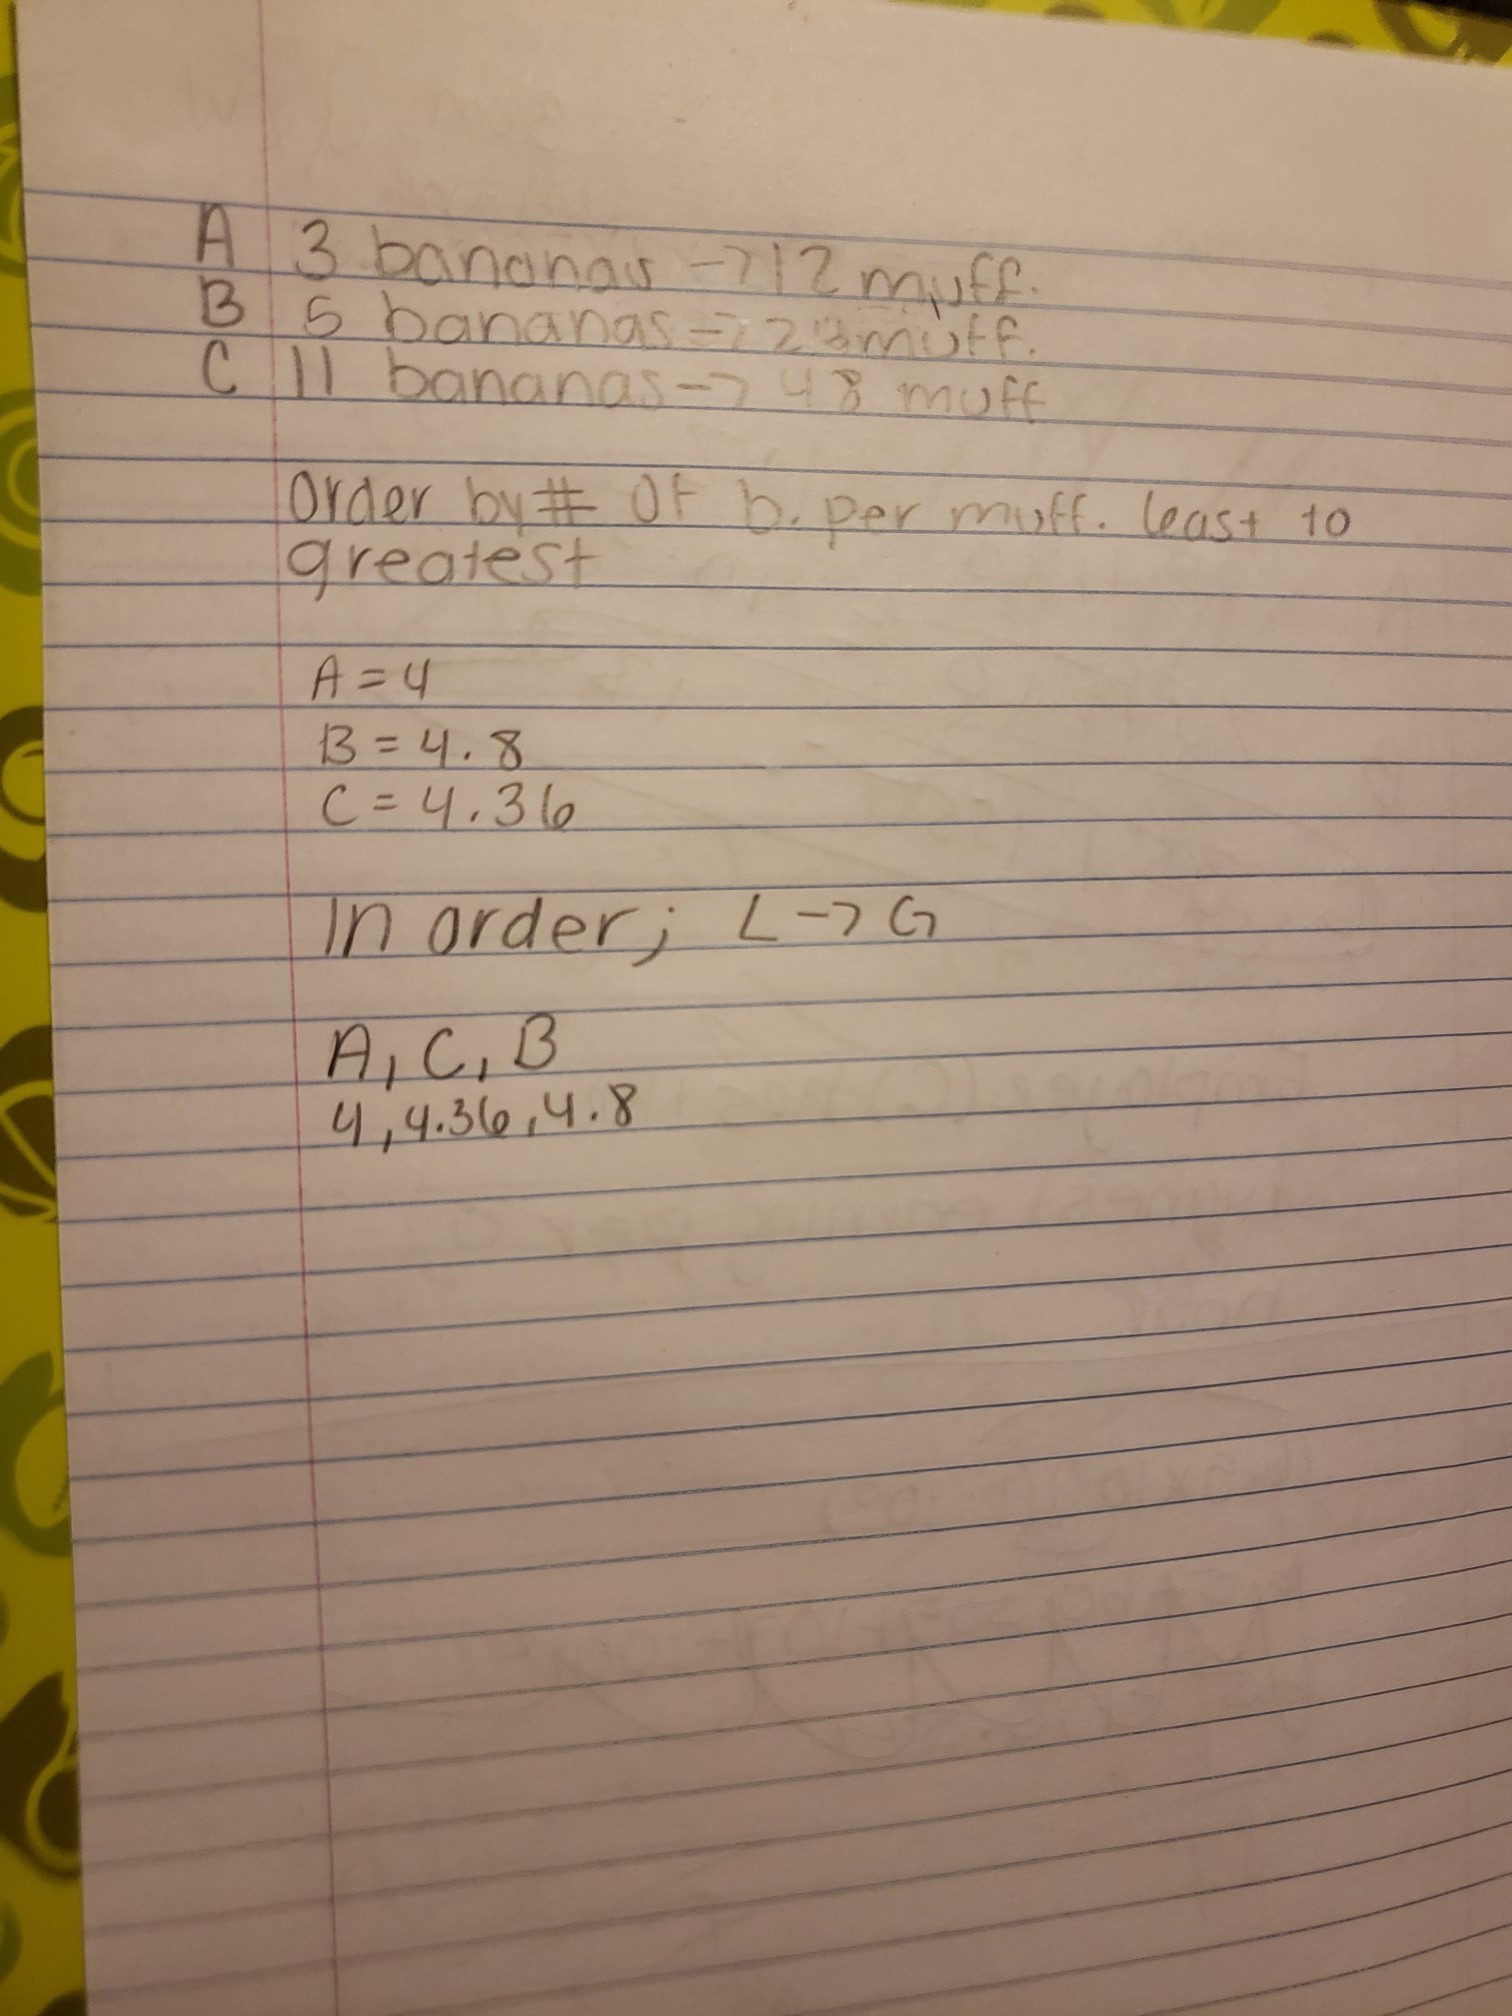 A 3 bananas → 12 muff.
B 5 bananas → muff.
C 11 bananas → 48 muff
Order by # of b. per muff. least to
greatest
A = 4
B = 4.8
C = 4.36
In order; L → G
A, C, B
4, 4.36, 4.8